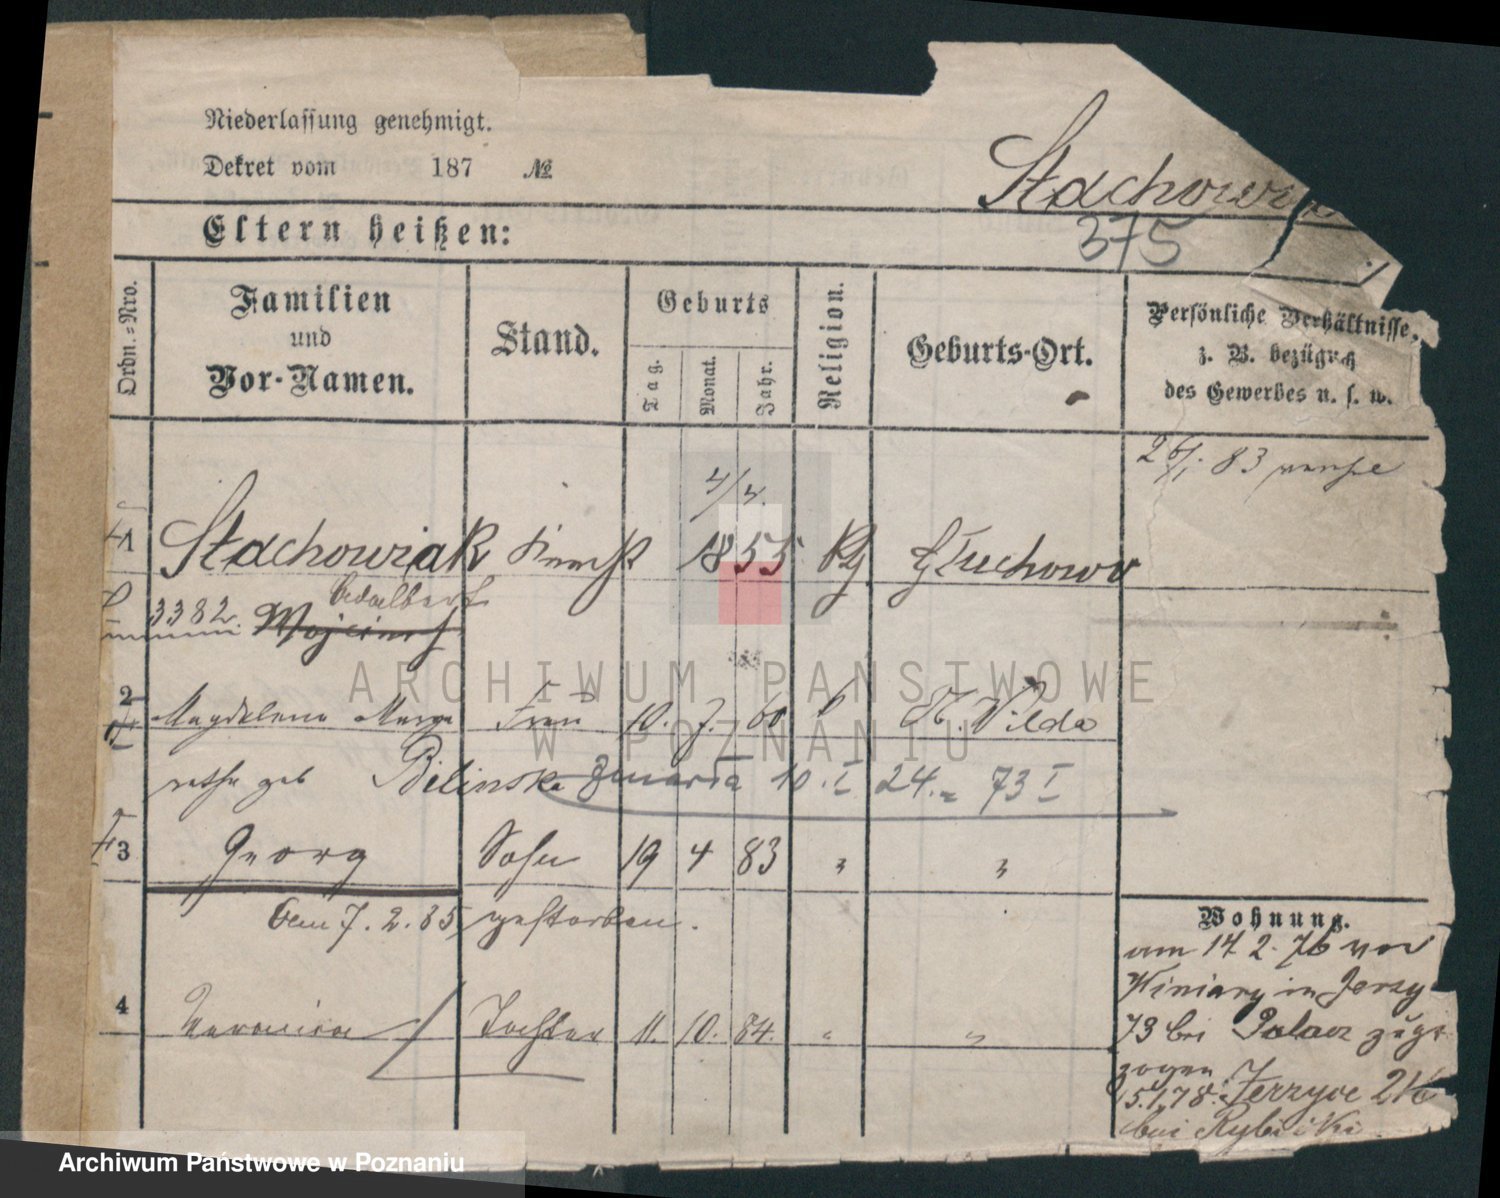 Niederlassung genehmigt.
Dekret vom 187 №
Stachowiak
375
Eltern heißen:
Ordn.=Nro.
Familien
und
Vor-Namen.
Stand.
Geburts
Tag.
Monat.
Jahr.
Religion.
Geburts-Ort.
Persönliche Verhältnisse,
z. B. bezüglich
des Gewerbes u. s. w.
26/1. 83
4/4.
1 Stachowiak Knecht 1855 Głuchowo
Adalbert
3382
2 Magdalena Marga Frau 10. 7. 60 Wilda
rethe geb Bilinska zmarła 10. I 24. 73 I
3 Georg Sohn 19 4 83 " "
Am 7. 2. 85 gestorben.
4 Veronica Tochter 11. 10. 84. " "
Wohnung.
am 17. 2. 76 von
Winiary in Jerzy
73 bei zuge
zogen
5.1.78. Jerzyce
bei Rybicki
ARCHIWUM PAŃSTWOWE
W POZNANIU
Archiwum Państwowe w Poznaniu